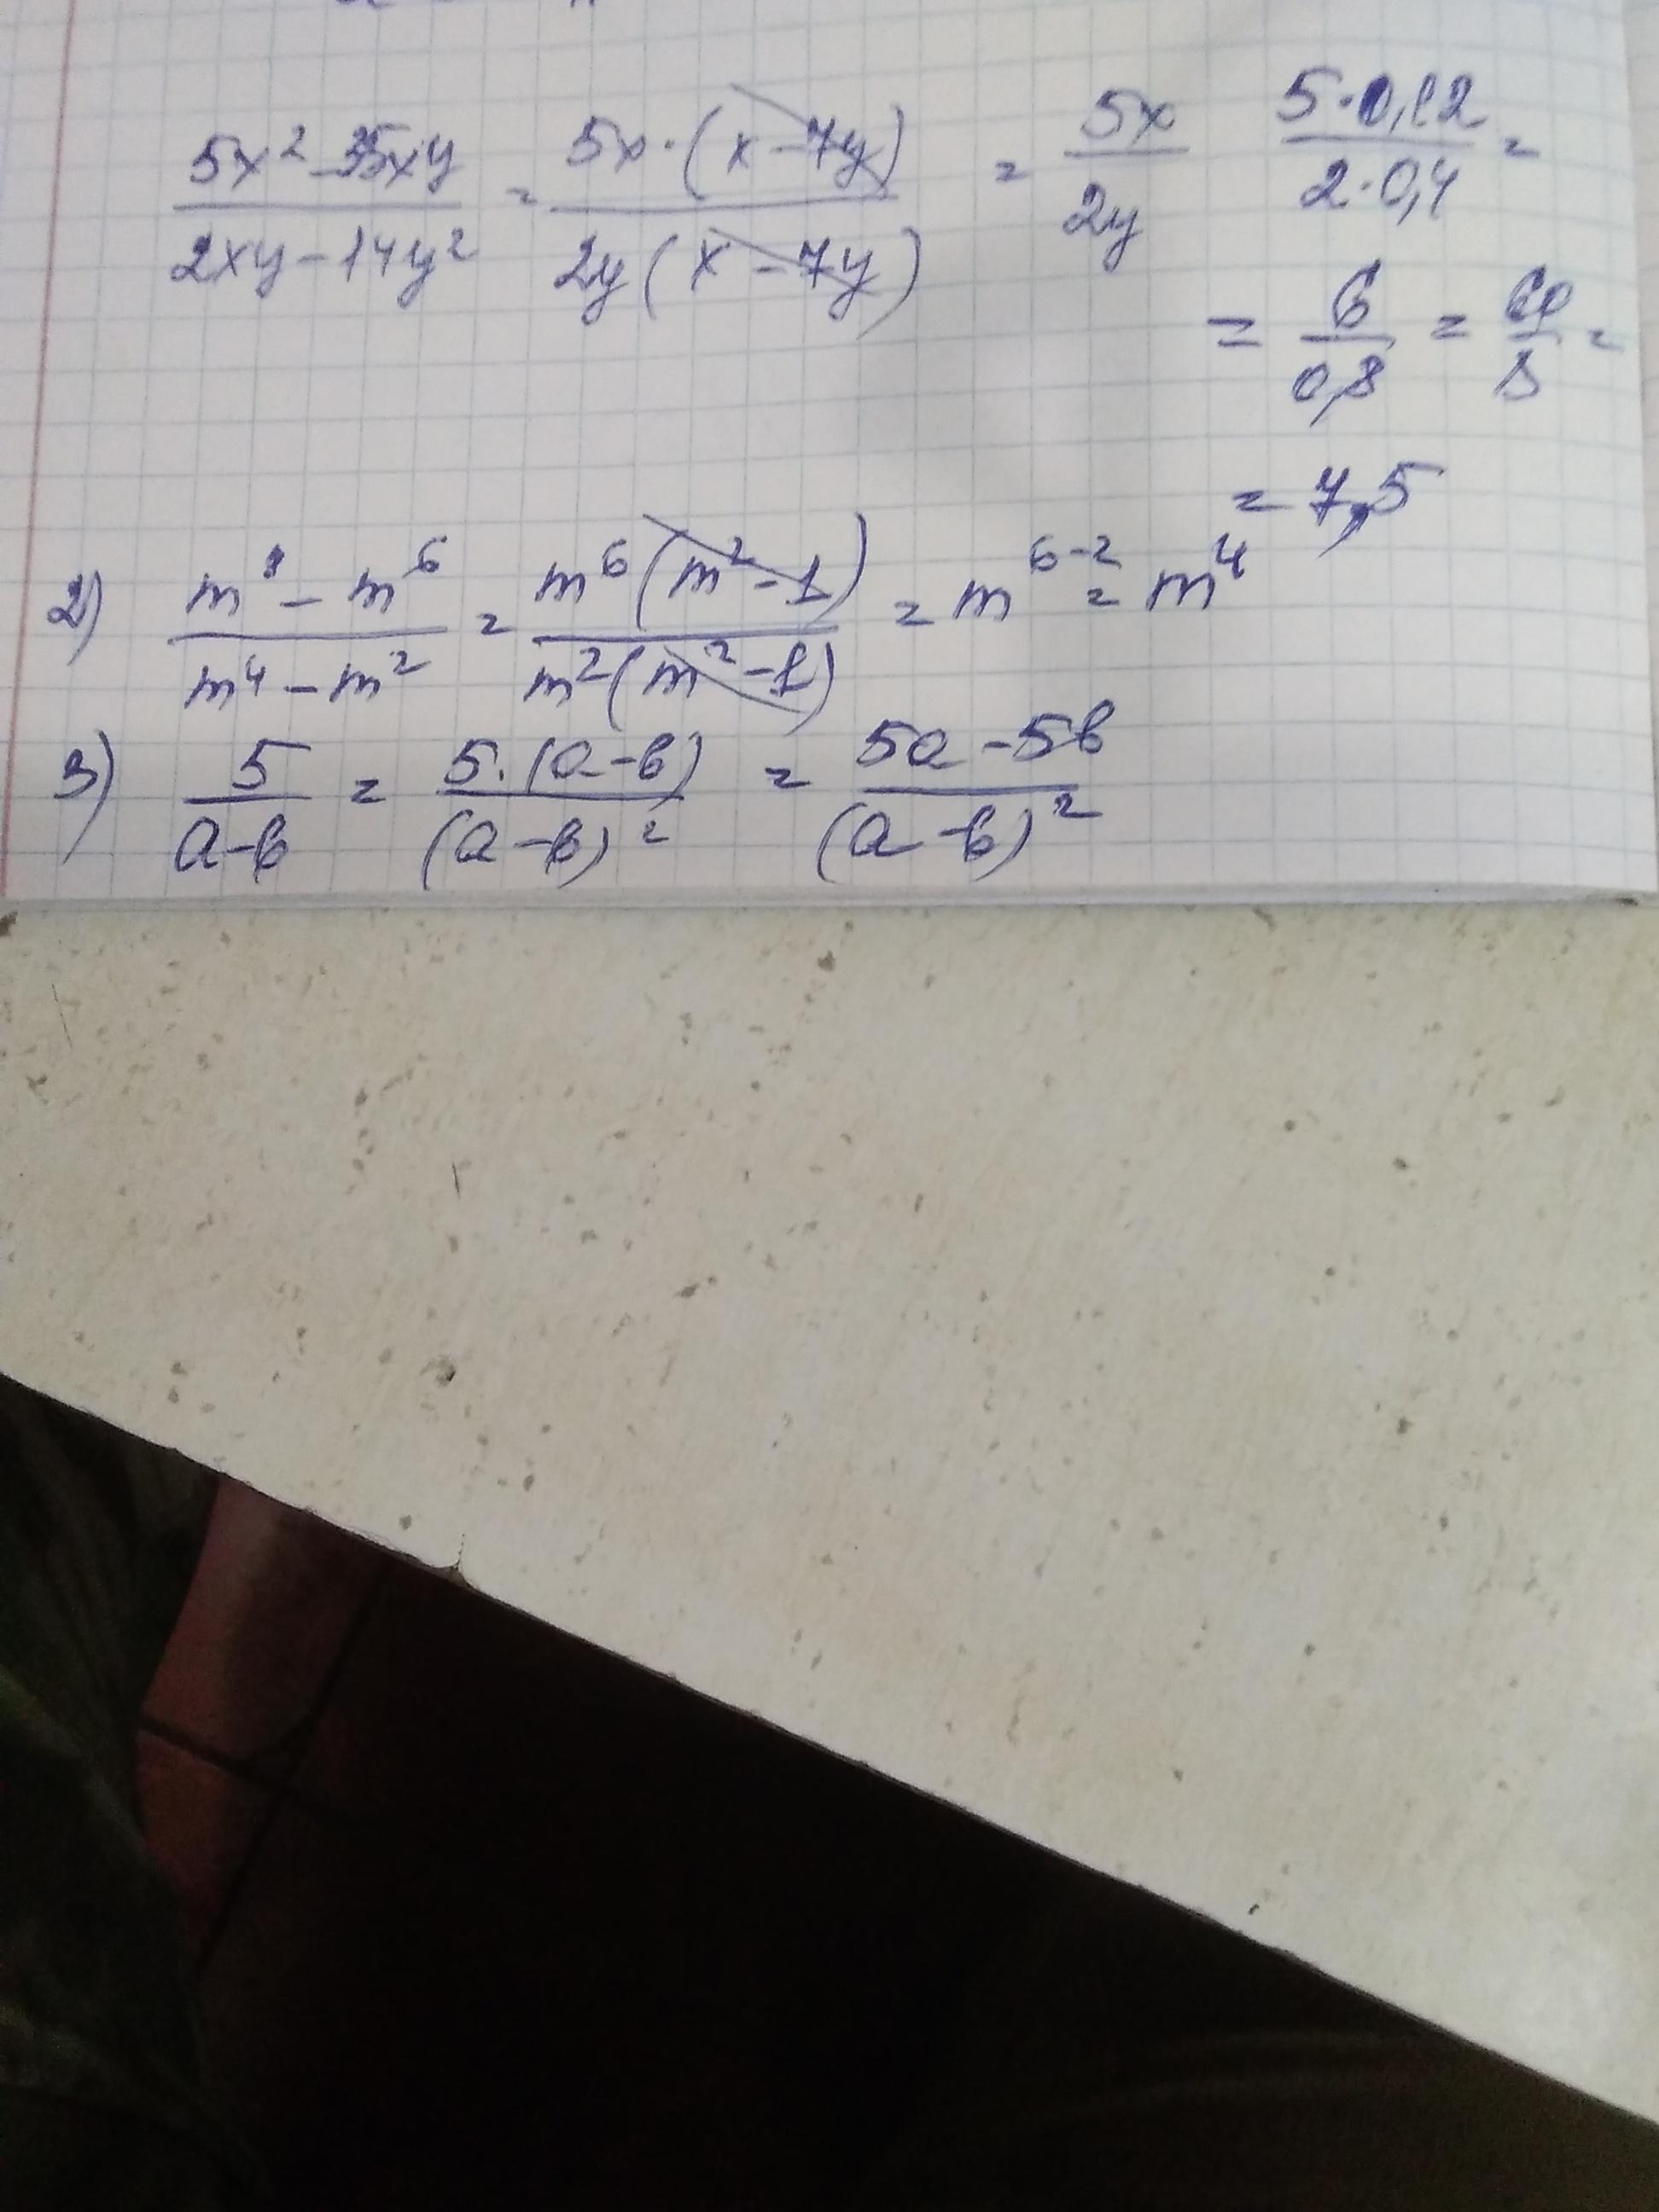 5x² - 35xy / 2xy - 14y² = 5x·(x - 7y) / 2y(x - 7y) = 5x / 2y 5·0,12 / 2·0,4 =
= 6 / 0,8 = 60 / 8 =
= 7,5
2) m⁸ - m⁶ / m⁴ - m² = m⁶(m² - 1) / m²(m² - 1) = m⁶⁻² = m⁴
3) 5 / a-b = 5·(a-b) / (a-b)² = 5a - 5b / (a-b)²